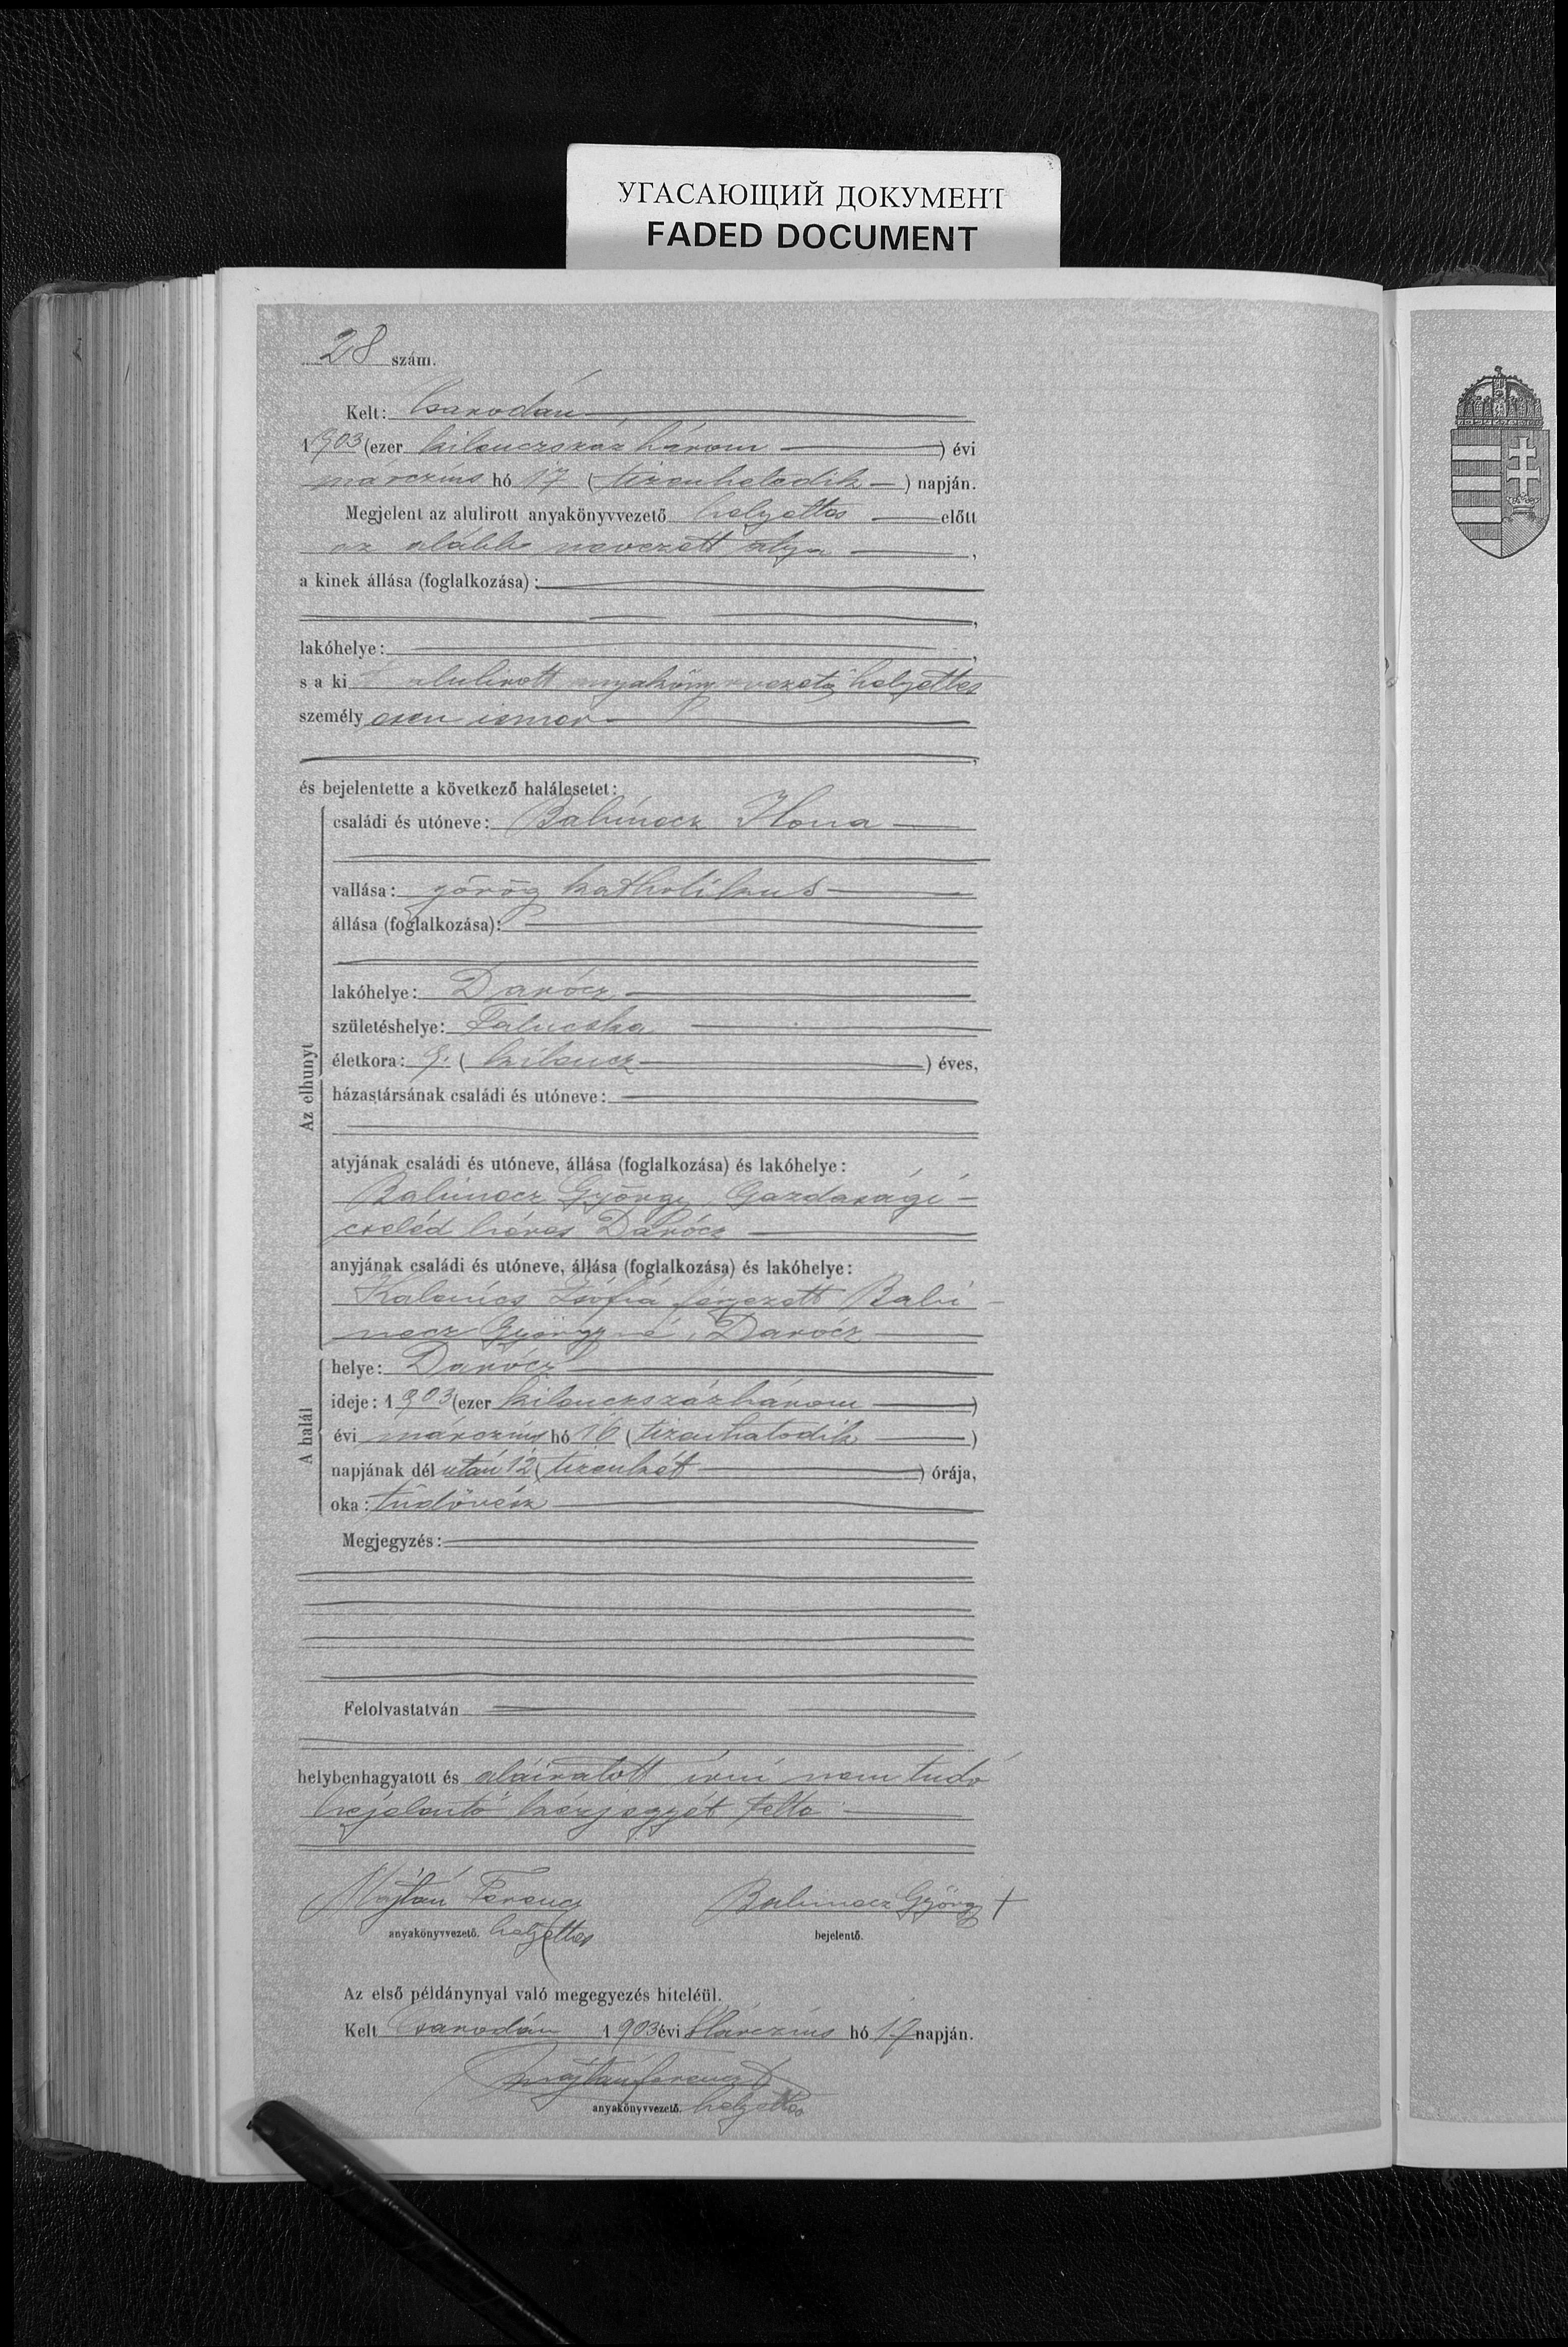 УГАСАЮЩИЙ ДОКУМЕНТ
FADED DOCUMENT
28 szám.
Kelt: Csarodán
1903 (ezer kilenczszáz három) évi
márczius hó 17 (tizenhetedik) napján.
Megjelent az alulirott anyakönyvvezető helyettes előtt
az alább nevezett atya,
a kinek állása (foglalkozása):
lakóhelye:
s a ki alulirott anyakönyvvezető helyettes
személyesen ismer
és bejelentette a következő halálesetet:
családi és utóneve: Babinecz Ilona
vallása: görög katholikus
állása (foglalkozása):
lakóhelye: Darócz
születéshelye: Falucska
életkora: 9. (kilencz) éves,
házastársának családi és utóneve:
Az elhunyt
atyjának családi és utóneve, állása (foglalkozása) és lakóhelye:
Babinecz György, Gazdasági
cseléd béres Darócz
anyjának családi és utóneve, állása (foglalkozása) és lakóhelye:
Zsófia Babi-
necz Györgyné, Darócz
helye: Darócz
ideje: 1903 (ezer kilenczszázhárom)
A halál
évi márczius hó 16 (tizenhatodik)
napjának dél után 12 (tizenkét) órája,
oka: tüdövész
Megjegyzés:
Felolvastatván
helybenhagyatott és aláiratott irni nem tudó
bejelentő kézjegyét tette
Majtán Ferencz Babinecz György +
anyakönyvvezető. helyettes bejelentő.
Az első példánynyal való megegyezés hiteléül.
Kelt Csarodán 1903 évi Márczius hó 17 napján.
Majtán Ferencz
anyakönyvvezető. helyettes